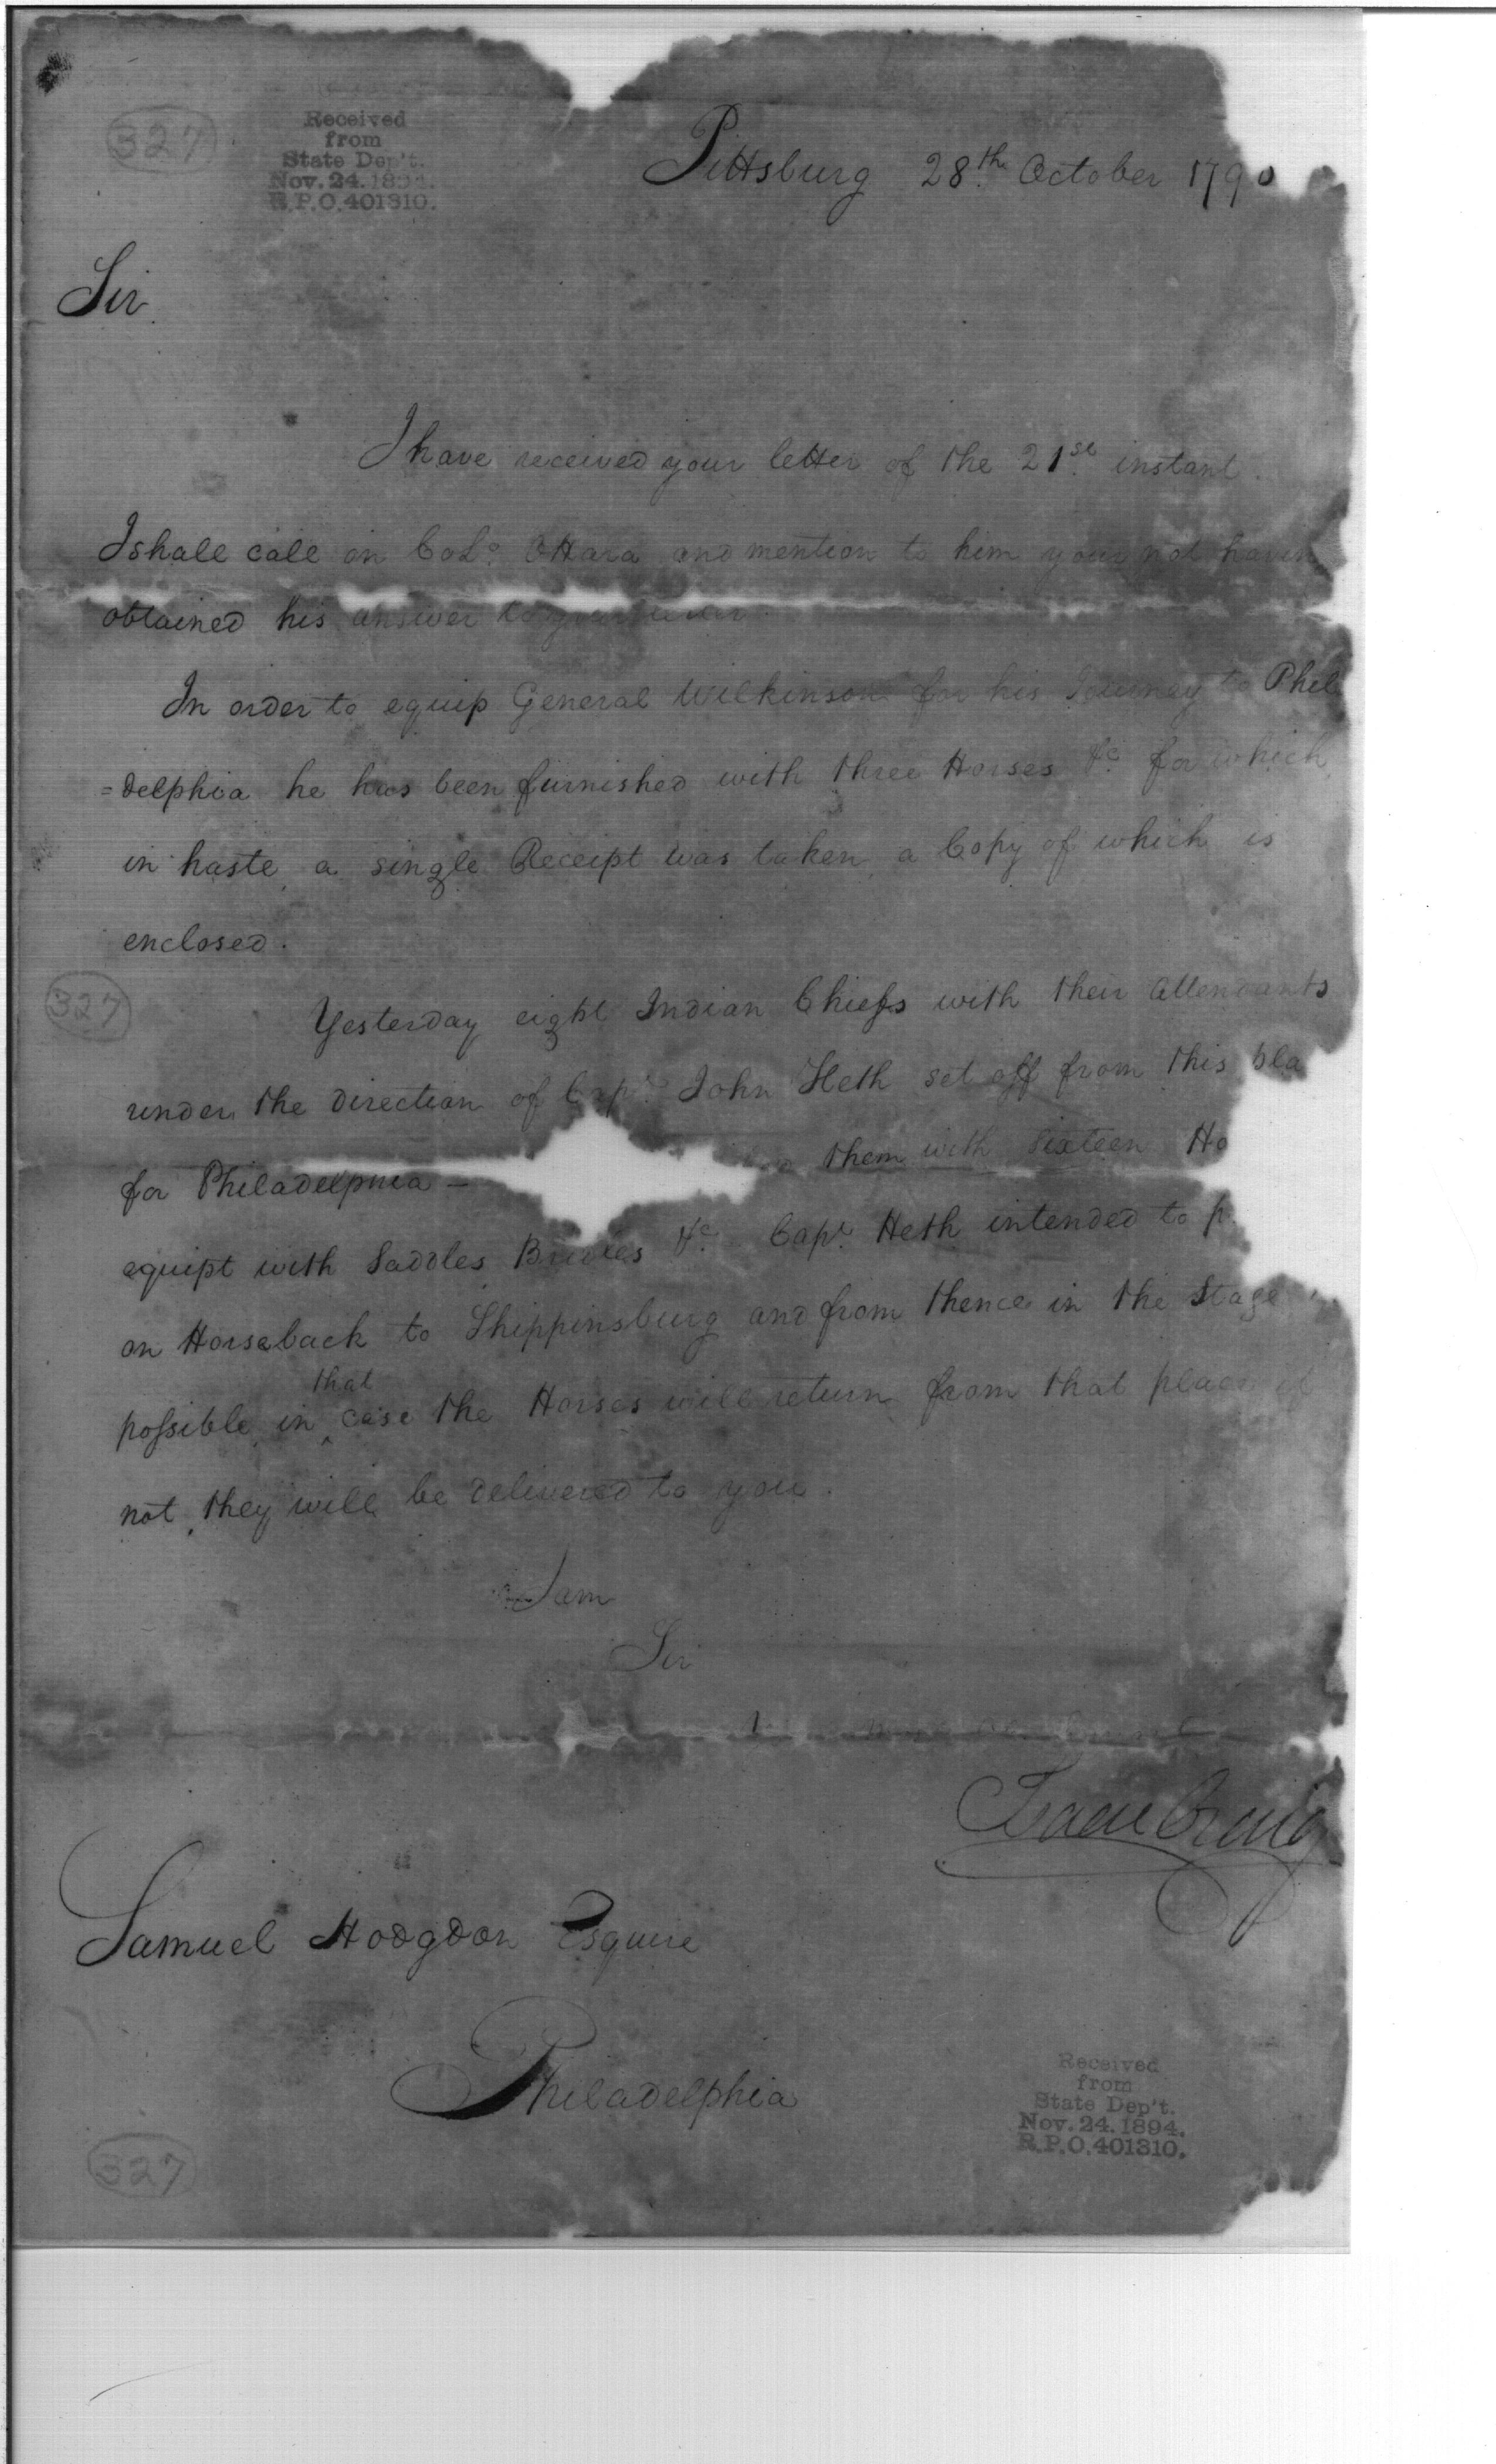 327
Received
from
State Dep't.
Nov. 24. 1894.
R.P.O. 401310.
Pittsburg 28th October 1790
Sir
I have received your letter of the 21st instant.
I shall call on Colo. OHara and mention to him your not havin
obtained his answer to your letter
In order to equip General Wilkinson for his Journey to Phil
=delphia he has been furnished with three Horses &c. for which
in haste a single Receipt was taken, a Copy of which is
enclosed.
327
Yesterday eight Indian Chiefs with their Attendants
under the direction of Capt. John Heth set off from this pla
for Philadelphia — them with sixteen Ho
equipt with Saddles Bridles &c. Capt. Heth intended to p
on Horseback to Shippinsburg and from thence in the Stage
that
possible, in case the Horses will return from that place if
not, they will be delivered to you.
I am
Sir
Isaac Craig
Samuel Hodgdon Esquire
Philadelphia
Received
from
State Dep't.
Nov. 24. 1894.
R.P.O. 401310.
327